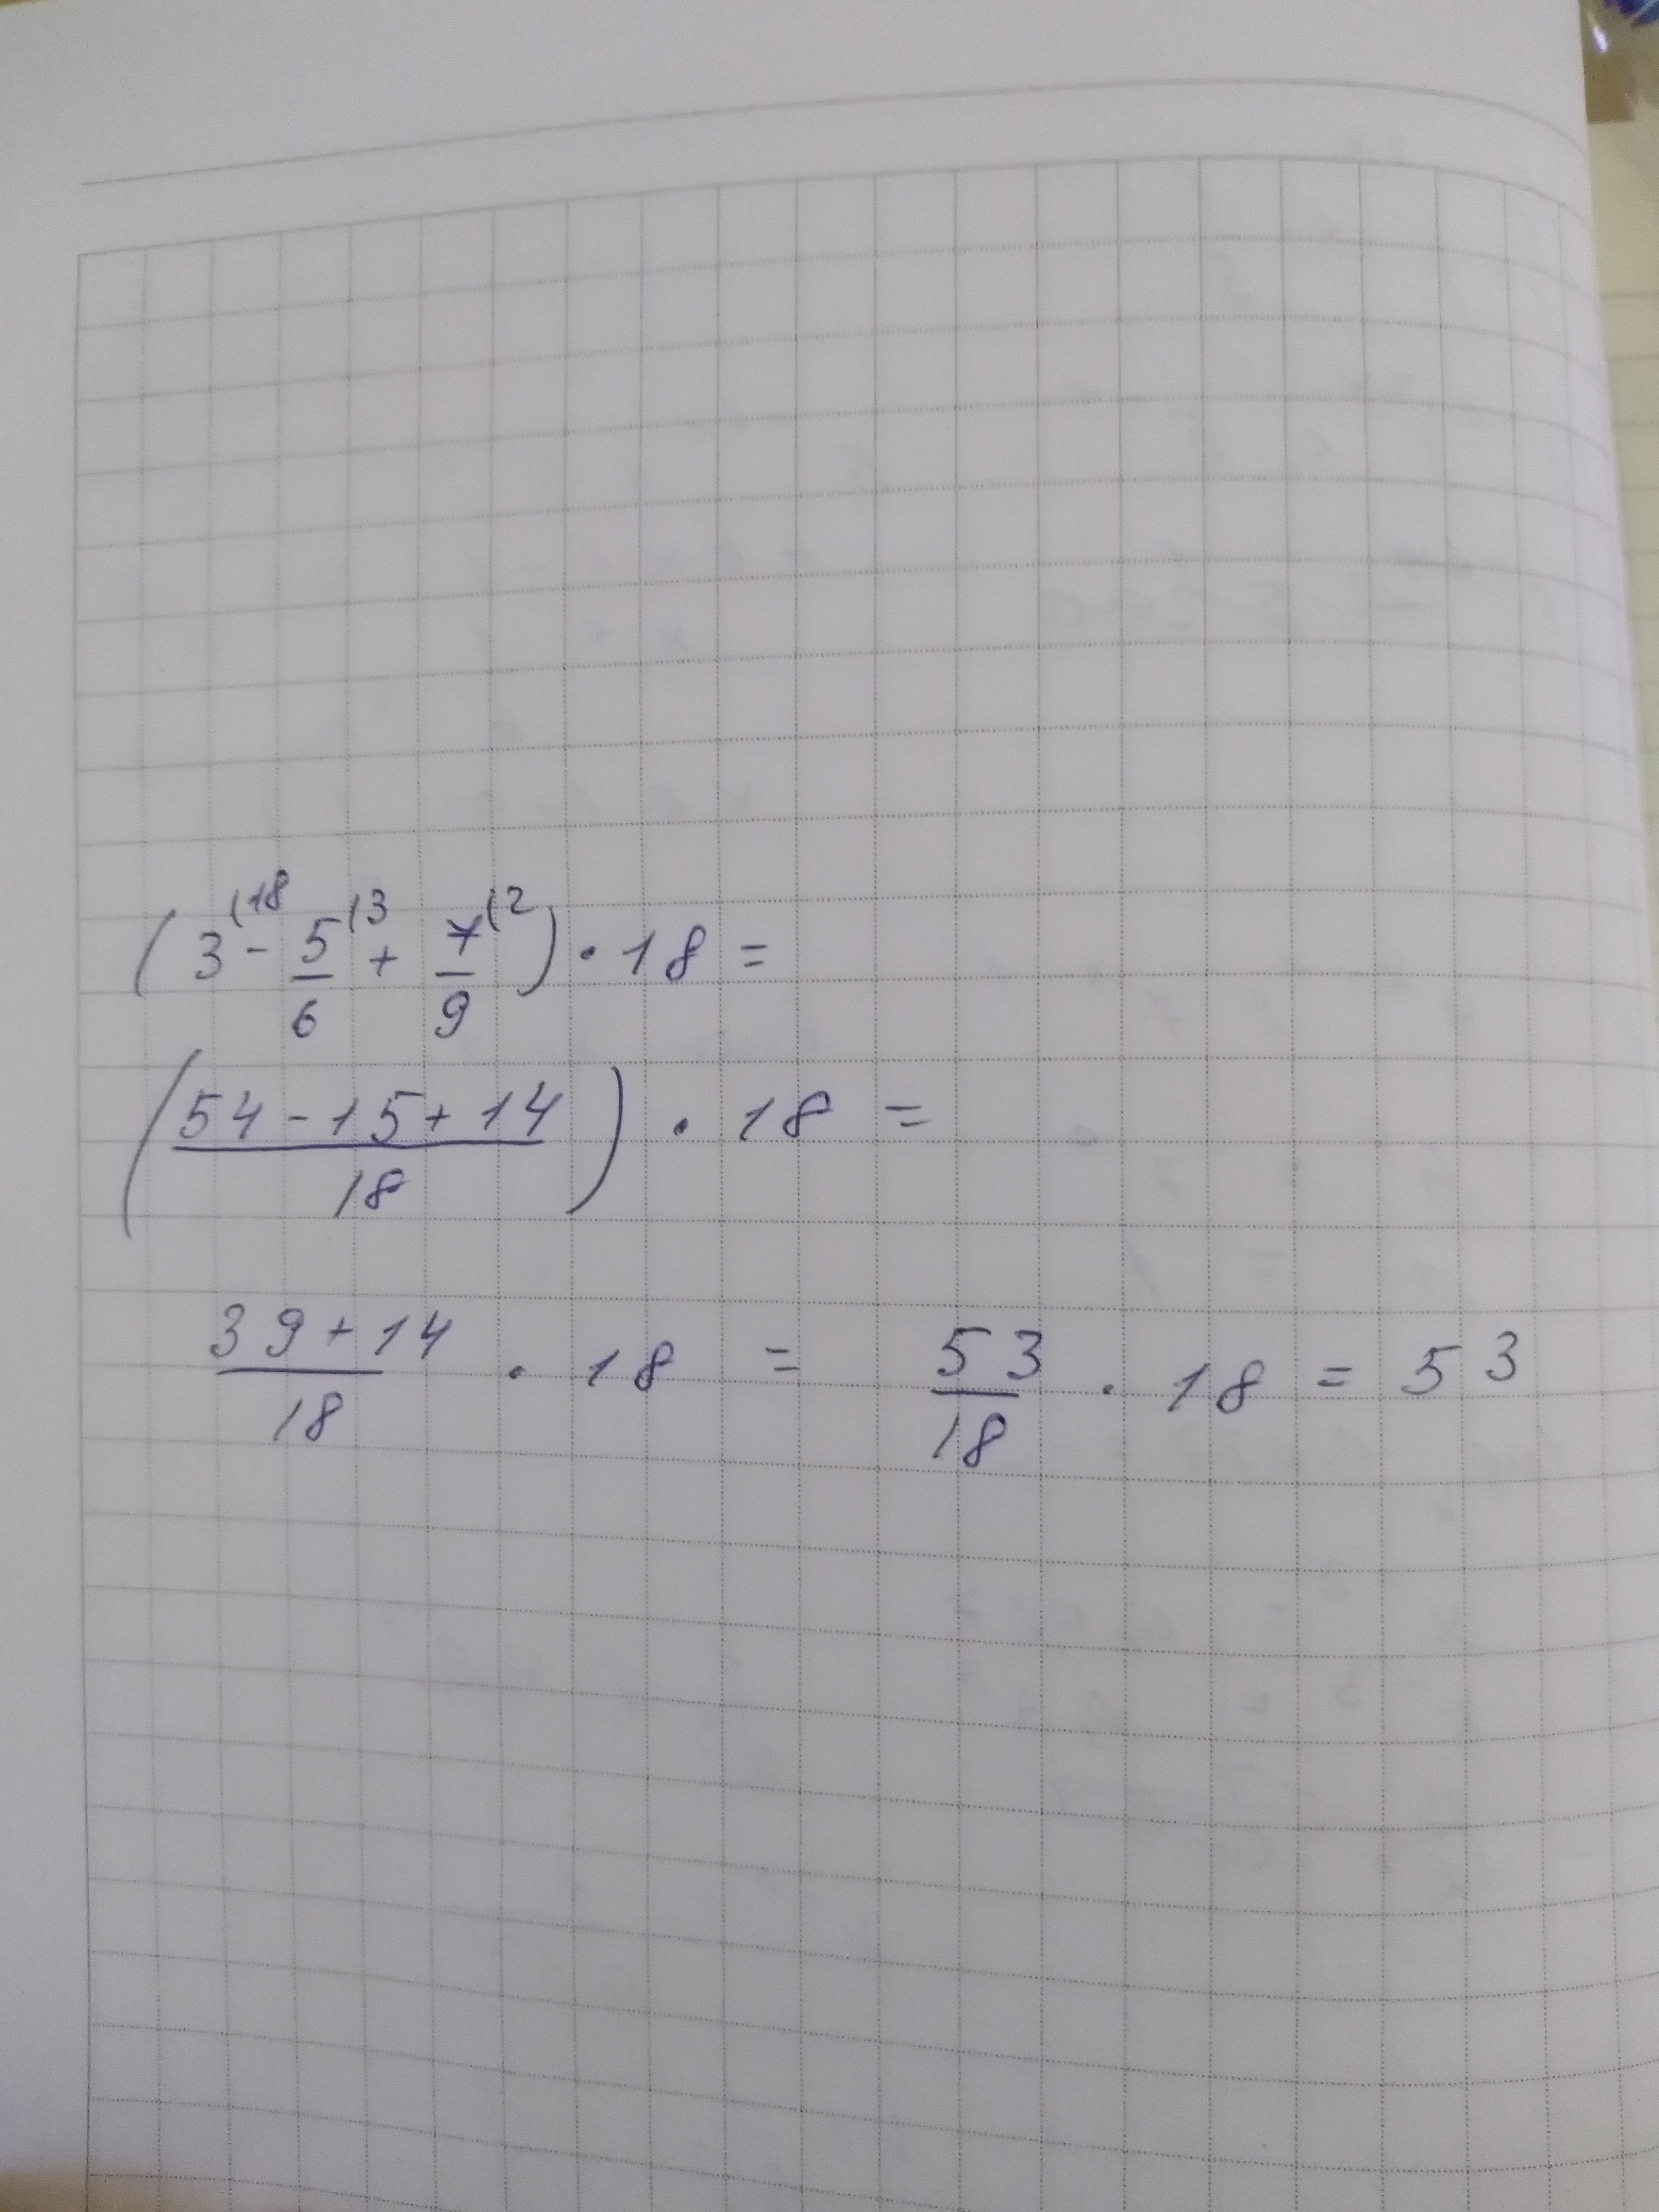 (3(18 - 5/6(3 + 7/9(2) · 18 =
((54 - 15 + 14)/18) · 18 =
(39 + 14)/18 · 18 = 53/18 · 18 = 53